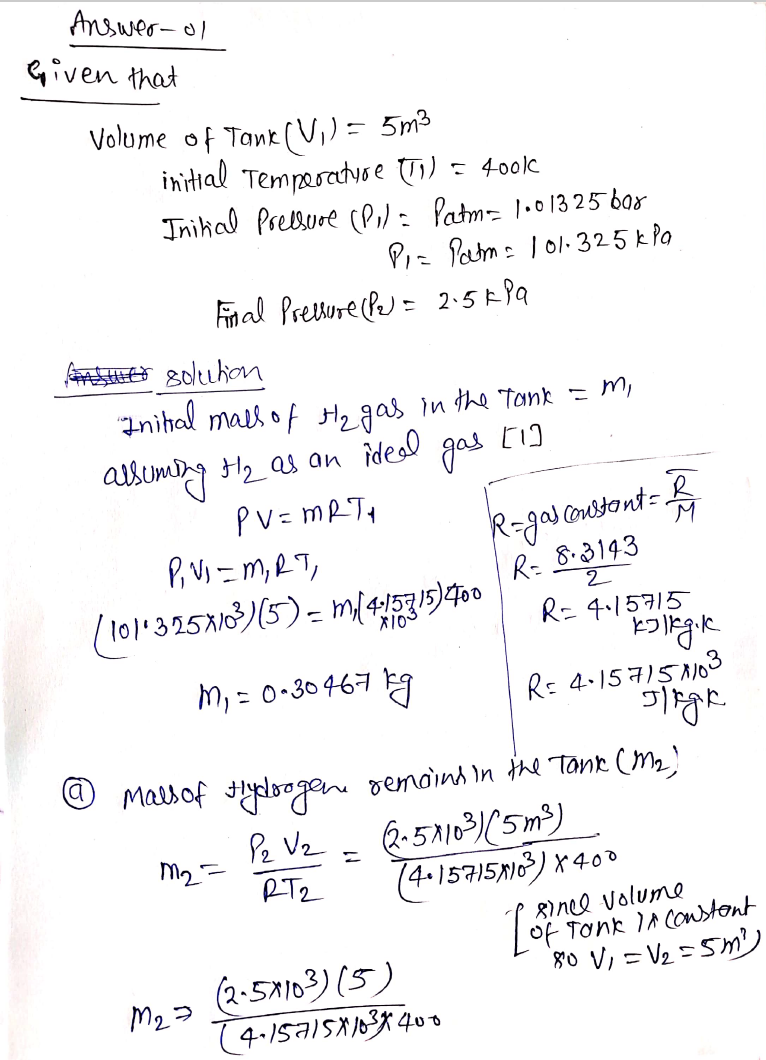 Answer-01
Given that
Volume of Tank (V₁) = 5m³
initial Temperature (T₁) = 400k
Initial Pressure (P₁) = Patm = 1.01325 bar
P₁ = Patm = 101.325 kPa
Final Pressure (P₂) = 2.5 kPa
Answer solution
Initial mass of H₂ gas in the Tank = m₁
assuming H₂ as an ideal gas [1]
PV = mRT₁
P₁V₁ = m₁RT₁
(101.325×10³)(5) = m₁(4.15715×10³)400
m₁ = 0.30467 kg
R = gas constant = R̅/M
R = 8.3143/2
R = 4.15715
kJ/kg.k
R = 4.15715×10³
J/kgk
(a) Mass of Hydrogen remains in the Tank (m₂)
m₂ = P₂V₂/RT₂ = (2.5×10³)(5m³)/(4.15715×10³) × 400
[since volume
of Tank is constant
so V₁ = V₂ = 5m³)
m₂ ⇒ (2.5×10³)(5)/(4.15715×10³× 400